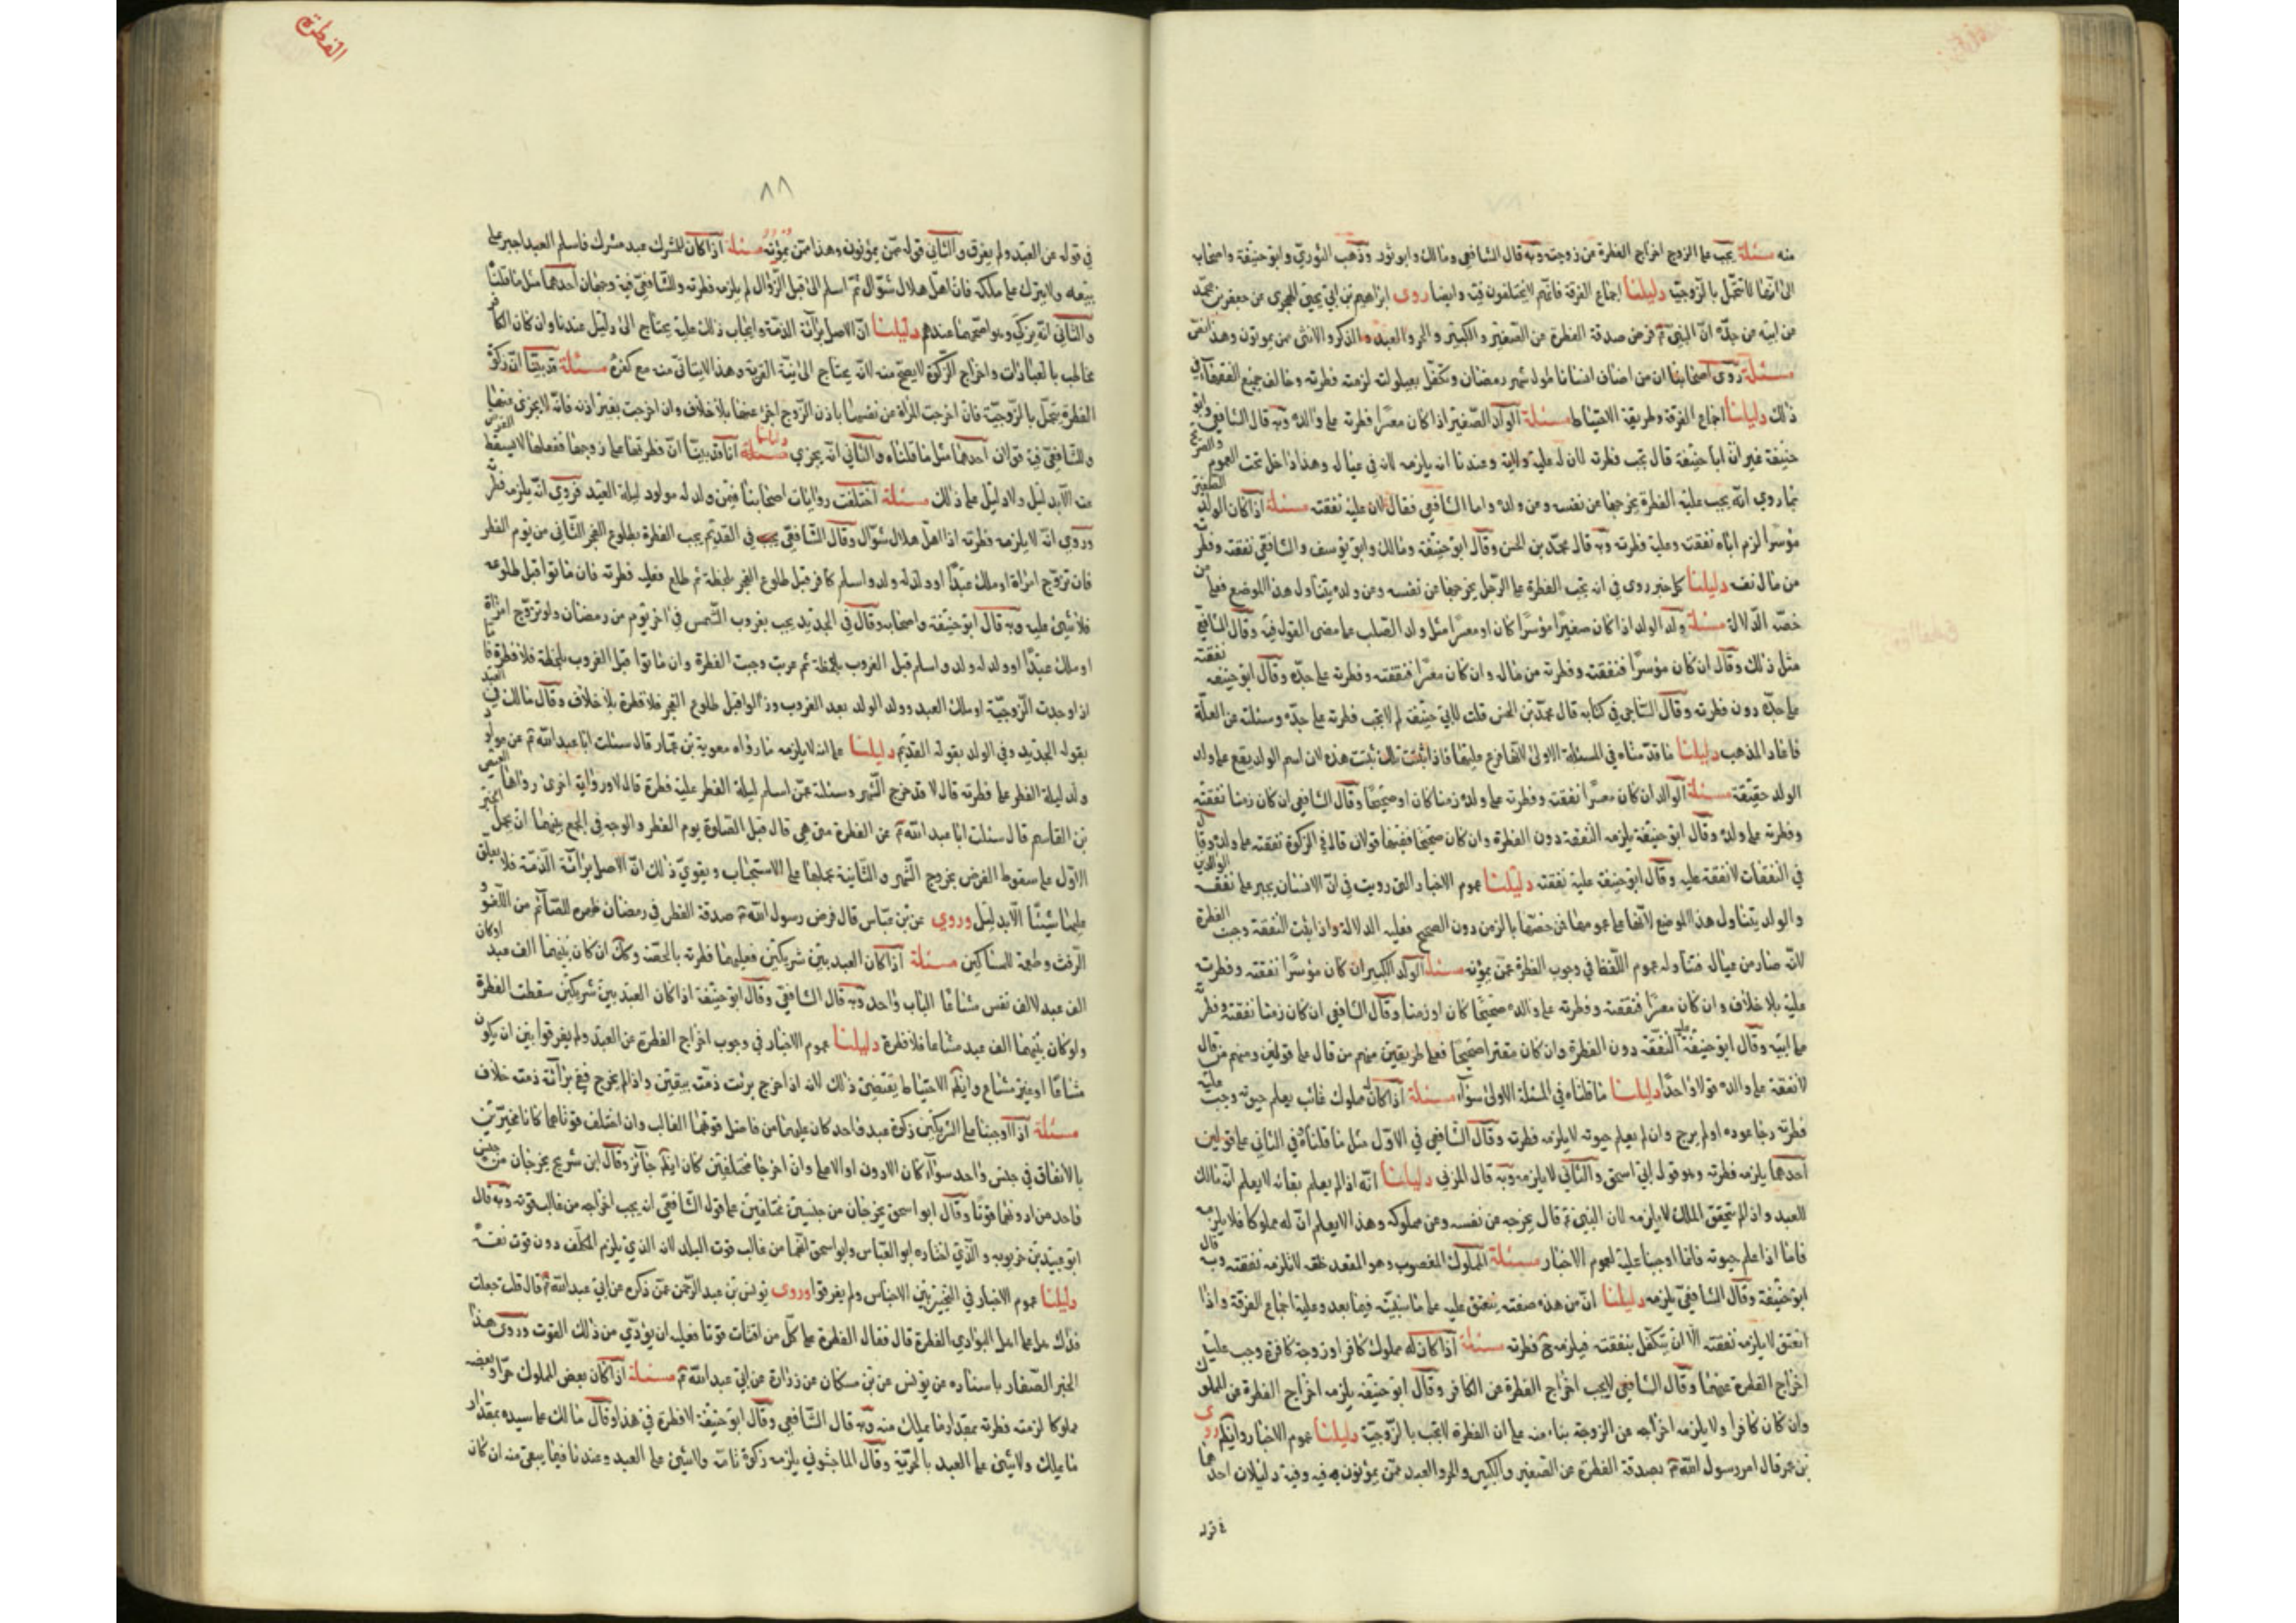 منه مسئلة يجب على الزوج اخراج الفطرة من زوجته وبه قال الشافعي ومالك وابو ثور وذهب الثوري وابو حنيفة واصحابه
الى انها لا تتحمل بالزوجية دليلنا اجماع الفرقة فانهم لا يختلفون فيه وايضا روى ابراهيم بن ابي يحيى عن جعفر بن محمد
عن ابيه عن جده ان النبي فرض صدقة الفطرة عن الصغير والكبير والحر والعبد والذكر والانثى ممن يمونون وهذا نص
مسئلة روى اصحابنا ان من اضاف انسانا طول شهر رمضان وتكفل بعيلولته لزمته فطرته وخالف جميع الفقهاء في
ذلك دليلنا اجماع الفرقة وطريقة الاحتياط مسئلة الولد الصغير اذا كان معسرا فطرته على والده وبه قال الشافعي وابو
حنيفة غير ان ابا حنيفة قال تجب فطرته لان له عليه ولاية وعندنا انه يلزمه لانه في عياله وهذا داخل تحت العموم
بما روي انه يجب عليه الفطرة يخرجها عن نفسه ومن ولده واما الشافعي فقال لان عليه نفقته مسئلة اذا كان الولد الصغير
موسرا لزم اباه نفقته وعليه فطرته وبه قال محمد بن الحسن وقال ابو حنيفة ومالك وابو يوسف والشافعي نفقته وفطرته
من مال نفسه دليلنا كل خبر روى في انه يجب الفطرة على الرجل يخرجها عن نفسه ومن ولده يتناول هذا الموضع فعلى من
خصه الدلالة مسئلة ولد الولد اذا كان صغيرا موسرا كان او معسرا مثل ولد الصلب على ما مضى القول فيه وقال الشافعي
مثل ذلك وقال ان كان موسرا فنفقته وفطرته من ماله وان كان معسرا فنفقته وفطرته على جده وقال ابو حنيفه نفقته
على جده دون فطرته وقال الساجي في كتابه قال محمد بن الحسن قلت لابي حنيفة لم لا تجب فطرته على جده وسئلته عن العلة
فاعاد المذهب دليلنا ما قدمناه في المسئلة الاولى لانها فرع عليها فاذا ثبتت تلك ثبتت هذه لان اسم الولد يقع على ولد
الولد حقيقة مسئلة الوالد ان كان معسرا نفقته وفطرته على ولده زمنا كان او صحيحا وقال الشافعي ان كان زمنا نفقته
وفطرته على ولده وقال ابو حنيفة يلزمه النفقة دون الفطرة وان كان صحيحا ففيها قولان قال في الزكوة نفقته على ولده وقال
في النفقات لا نفقة عليه وقال ابو حنيفة عليه نفقته دليلنا عموم الاخبار التي رويت في ان الانسان يجبر على نفقة الوالدين
والولد يتناول هذا الموضع لانها على عمومها فمن خصها بالزمن دون الصحيح فعليه الدلالة واذا ثبت النفقة وجبت الفطرة
لانه صار من عياله فتناوله عموم اللفظ في وجوب الفطرة عمن يمونه مسئلة الولد الكبير ان كان موسرا نفقته وفطرته
عليه بلا خلاف وان كان معسرا فنفقته وفطرته على والده صحيحا كان او زمنا وقال الشافعي ان كان زمنا نفقته وفطرته
على ابيه وقال ابو حنيفة عليه النفقة دون الفطرة وان كان معسرا صحيحا فعلى طريقين منهم من قال على قولين ومنهم من قال
لا نفقة على والده قولا واحدا دليلنا ما قلناه في المسئلة الاولى سواء مسئلة اذا كان له مملوك غائب يعلم حيوته وجبت عليه
فطرته رجا عوده او لم يرج وان لم يعلم حيوته لا يلزمه فطرته وقال الشافعي في الاول مثل ما قلناه وفي الثاني على قولين
احدهما يلزمه فطرته وهو قول ابي اسحق والثاني لا يلزمه وبه قال المزني دليلنا انه اذا لم يعلم بقائه لا يعلم انه مالك
للعبد واذا لم يتحقق الملك لا يلزمه لان النبي قال يخرجه عن نفسه ومن مملوكه وهذا لا يعلم ان له مملوكا فلا يلزمه
فاما اذا علم حيوته فانما اوجبنا عليه لعموم الاخبار مسئلة المملوك المغصوب وهو المقعد خلقه لا تلزمه نفقته وبه قال
ابو حنيفة وقال الشافعي يلزمه دليلنا ان من هذه صفته ينعتق عليه على ما نبينه فيما بعد وعليه اجماع الفرقة واذا
انعتق لا يلزمه نفقته الا ان يتكفل بنفقته فيلزمه فطرته مسئلة اذا كان له مملوك كافر او زوجة كافرة وجب عليه
اخراج الفطرة عنهما وقال الشافعي لا يجب اخراج الفطرة عن الكافر وقال ابو حنيفة يلزمه اخراج الفطرة عن المملوك
وان كان كافرا ولا يلزمه اخراجه عن الزوجة بناء منه على ان الفطرة لا تجب بالزوجية دليلنا عموم الاخبار وروى
بن عمر قال امر رسول الله بصدقة الفطرة عن الصغير والكبير والحر والعبد ممن يمونون وفيه دليلان احدهما
قوله
الفطرة
٨٨
في قوله عن العبد ولم يفرق والثاني قوله ممن يمونون وهذا ممن يمونه مسئلة اذا كان للمشرك عبد مشرك فاسلم العبد اجبر على
بيعه ولا يترك على ملكه فان اهل هلال شوال ثم اسلم الى قبل الزوال لم يلزمه فطرته وللشافعي فيه وجهان احدهما مثل ما قلنا
والثاني انه يزكي وهو اصحهما عندهم دليلنا ان الاصل برائة الذمة وايجاب ذلك عليه يحتاج الى دليل عندنا وان كان الكافر
مخاطب بالعبادات واخراج الزكوة لا يصح منه لانه يحتاج الى نية القربة وهذا لا يتاتى منه مع كفره مسئلة قد بينا ان زكوة
الفطرة يتحمل بالزوجية فان اخرجت المراة عن نفسها باذن الزوج اجزء عنها بلا خلاف وان اخرجت بغير اذنه فانه لا يجزى عنها
وللشافعي فيه قولان احدهما مثل ما قلناه والثاني انه يجزي دليلنا انا قد بينا ان فطرتها على زوجها ففعلها لا يسقط الفرض
عنه الا بدليل ولا دليل على ذلك مسئلة اختلفت روايات اصحابنا فيمن ولد له مولود ليلة العيد فروي انه يلزمه فطرته
وروي انه لا يلزمه فطرته اذا اهل هلال شوال وقال الشافعي في القديم يجب الفطرة بطلوع الفجر الثاني من يوم الفطر
فان تزوج امراة او ملك عبدا او ولد له ولد او اسلم كافر قبل طلوع الفجر بلحظة ثم طلع فعليه فطرته فان ماتوا قبل طلوعه
فلا شيئ عليه وبه قال ابو حنيفة واصحابه وقال في الجديد يجب بغروب الشمس في اخر يوم من رمضان ولو تزوج امراة
او ملك عبدا او ولد له ولد او اسلم قبل الغروب بلحظة ثم غربت وجبت الفطرة وان ماتوا قبل الغروب بلحظة فلا فطرة فاما
اذا وجدت الزوجية او ملك العبد وولد الولد بعد الغروب وزالوا قبل طلوع الفجر فلا فطرة بلا خلاف وقال مالك في العبد
بقوله الجديد وفي الولد بقوله القديم دليلنا على انه لا يلزمه ما رواه معوية بن عمار قال سئلت ابا عبد الله عن مولود
ولد ليلة الفطر على فطرته قال لا قد خرج الشهر وسئلته عمن اسلم ليلة الفطر عليه فطرة قال لا ورواية اخرى رواها العيص
بن القاسم قال سئلت ابا عبد الله عن الفطرة متى هي قال قبل الصلوة يوم الفطر والوجه في الجمع بينهما ان يحمل الخبر
الاول على سقوط الفرض بخروج الشهر والثانية يحملها على الاستحباب ويقوي ذلك ان الاصل برائة الذمة فلا يعلق
عليها شيئا الا بدليل وروي عن بن عباس قال فرض رسول الله صدقة الفطر في رمضان طهرة للصائم من اللغو و
الرفث وطعمة للمساكين مسئلة اذا كان العبد بين شريكين فعليهما فطرته بالحصة وكك ان كان بينهما الف عبد او كان
الف عبد لالف نفس مشاعا الباب واحد وبه قال الشافعي وقال ابو حنيفة اذا كان العبد بين شريكين سقطت الفطرة
ولو كان بينهما الف عبد مشاعا فلا فطرة دليلنا عموم الاخبار في وجوب اخراج الفطرة عن العبد ولم يفرقوا بين ان يكون
مشاعا او غير مشاع وايضا الاحتياط يقتضي ذلك لانه اذا اخرج برئت ذمته بيقين واذا لم يخرج ففي برائة ذمته خلاف
مسئلة اذا اوجبنا على الشريكين زكوة عبد واحد كان عليهما من فاضل قوتهما الغالب وان اختلف قوتاهما كانا مخيرين
بالانفاق في جنس واحد سواء كان الادون او الاعلى وان اخرجا مختلفين كان ايضا جائز وقال ابن شريح يخرجان من جنس
واحد من ادونهما قوتا وقال ابو اسحق يخرجان من جنسين مختلفين على قول الشافعي انه يجب اخراجه من غالب قوته وبه قال
ابو عبيد بن خربويه والذي اختاره ابو العباس وابو اسحق انهما من غالب قوت البلد لان الذي يلزم المكلف دون قوت نفسه
دليلنا عموم الاخبار في التخيير بين الاجناس ولم يفرقوا وروى يونس بن عبد الرحمن عمن ذكره عن ابي عبد الله قال قلت جعلت
فداك هل على اهل البوادي الفطرة قال فقال الفطرة على كل من اقتات قوتا فعليه ان يؤدي من ذلك القوت وروى هذا
الخبر الصفار باسناده عن يونس عن بن مسكان عن زرارة عن ابي عبد الله مسئلة اذا كان بعض المملوك حرا وبعضه
مملوكا لزمته فطرته بمقدار ما يملك منه وبه قال الشافعي وقال ابو حنيفة لا فطرة في هذا وقال مالك على سيده بمقدار
ما يملك ولا شيئ على العبد بالحرية وقال الماجشوني يلزمه زكوة تامة ولا شيئ على العبد وعندنا فيما يبقى منه ان كان